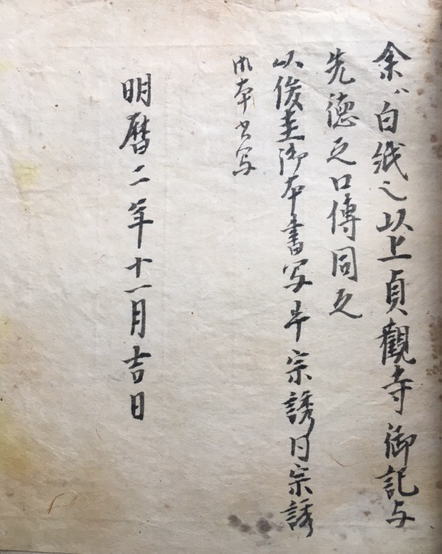 余ハ白紙之以上貞觀寺御記与
先徳之口傳同之
以俊圭御本書写畢宗誘月宗誘
御本書写
明暦二年十一月吉日